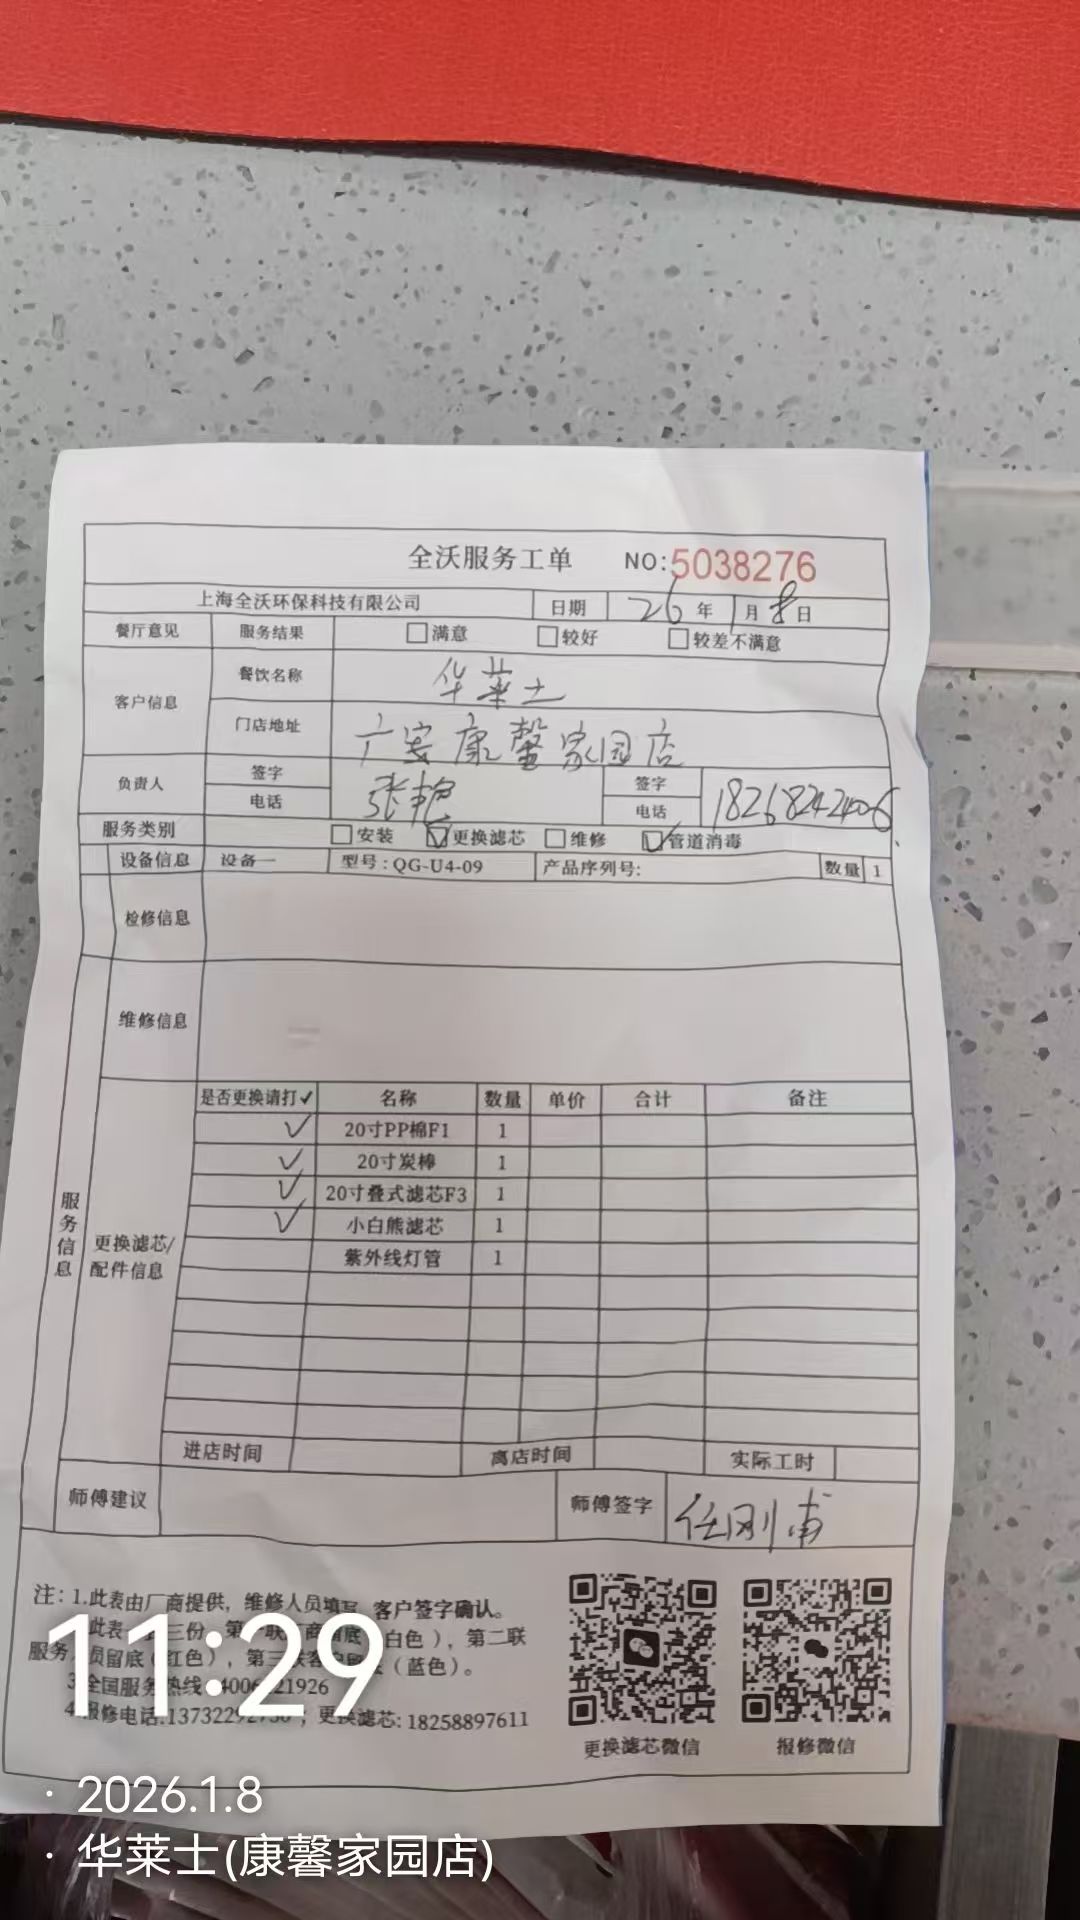 全沃服务工单 NO:5038276
上海全沃环保科技有限公司 日期 26年1月8日
餐厅意见 服务结果 □满意 □较好 □较差不满意
客户信息 餐饮名称 华莱士
门店地址 广安康馨家园店
负责人 签字 张艳 签字
电话 电话 18268242406
服务类别 □安装 ☑更换滤芯 □维修 ☑管道消毒
设备信息 设备一 型号:QG-U4-09 产品序列号: 数量 1
检修信息
维修信息
服务信息
更换滤芯/配件信息
是否更换请打✓ 名称 数量 单价 合计 备注
✓ 20寸PP棉F1 1
✓ 20寸炭棒 1
✓ 20寸叠式滤芯F3 1
✓ 小白熊滤芯 1
紫外线灯管 1
进店时间 离店时间 实际工时
师傅建议 师傅签字 任刚甫
注: 1.此表由厂商提供，维修人员填写，客户签字确认。
此表 三份，第一联厂商留底（白色），第二联
服务 员留底（红色），第三联客户留 （蓝色）。
3 全国服务热线 4006 21926
4 报修电话:13732292 ；更换滤芯:18258897611
更换滤芯微信 报修微信
11:29
· 2026.1.8
· 华莱士(康馨家园店)